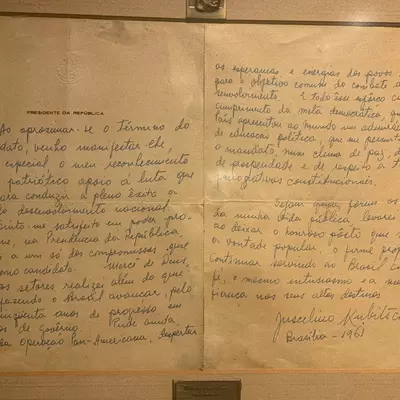 PRESIDENTE DA REPÚBLICA
Ao aproximar-se o término do
dato, venho manifestar-lhe,
especial o meu reconhecimento
patriótico apoio à luta que
para conduzir a pleno êxito o
do desenvolvimento nacional
sinto-me satisfeito em poder pro-
me, na Presidência da República
a um só dos compromissos que
como candidato. Mercê de Deus,
os setores realizei além do que
fazendo o Brasil avançar, pelo
cinqüenta anos de progresso em
os de govêrno. Pude ainda,
da operação Pan-Americana, despertar
as esperanças e energias dos povos
para o objetivo comum do combate ao
desenvolvimento. E todo êsse esfôrço
cumprimento da meta democrática, que
País apresentar ao mundo um
de educação política, que me
o mandato, num clima de paz,
de prosperidade e de respeito à
prerrogativas constitucionais.
Sejam quais forem os
da minha vida pública, levarei
ao deixar o honroso pôsto que
a vontade popular, o firme
continuar servindo ao Brasil
fé, o mesmo entusiasmo e a
fiança nos seus altos destinos
Juscelino Kubitschek
Brasília - 1961